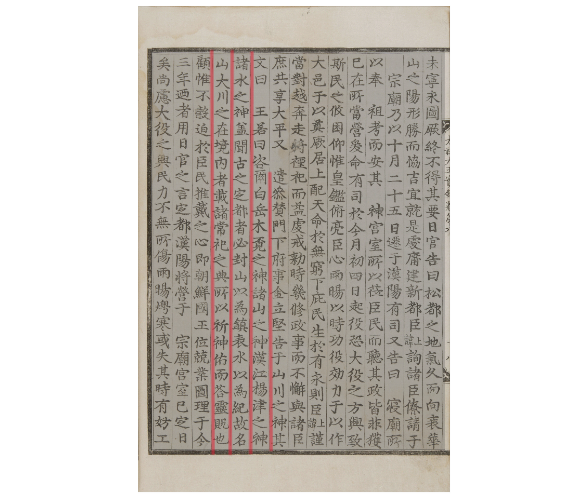 未寧永圖厥終不得其要日官告曰松都之地氣久而向衰華
山之陽形勝而協吉宜就是處庸建新都臣上諱詢諸臣僚請于
宗廟乃以十月二十五日遷于漢陽有司又告曰　寢廟所
以奉　祖考而安其　神宮室所以莅臣民而聽其政皆非獲
已在所當營爰命有司於今月初四日起役恐大役之方興致
斯民之攸困仰惟皇鑑俯亮臣心雨暘以時功役效力于以作
大邑于以奠厥居上配天命於無窮下庇民生於有永則臣上諱謹
當對越奔走將禋祀而益虔戒勅時幾修政事而不懈與諸臣
庶共享大平又　遣參贊門下府事金立堅告于山川之神其
文曰　王若曰咨爾白岳木覓之神諸山之神漢江楊津之神
諸水之神蓋聞古之定都者必封山以為鎮表水以為紀故名
山大川之在境內者載諸常祀之典所以祈神佑而答靈貺也
顧惟不穀迫於臣民推戴之心即朝鮮國王位兢業圖理于今
三年迺者用日官之言定都漢陽將營于　宗廟宮室已定日
矣尚慮大役之興民力不無所傷雨暘燠寒或失其時有妨工